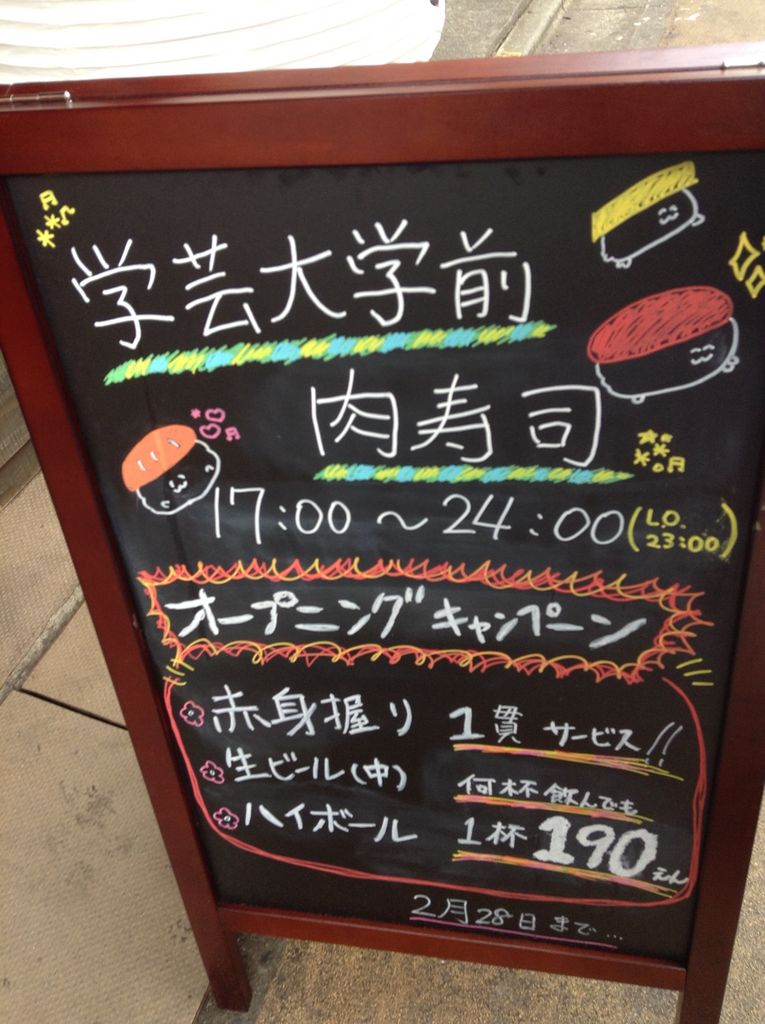 学芸大学前
肉寿司
17:00～24:00(L.O. 23:00)
オープニングキャンペーン
赤身握り 1貫 サービス!!
生ビール(中) 何杯飲んでも
ハイボール 1杯190えん
2月28日まで...